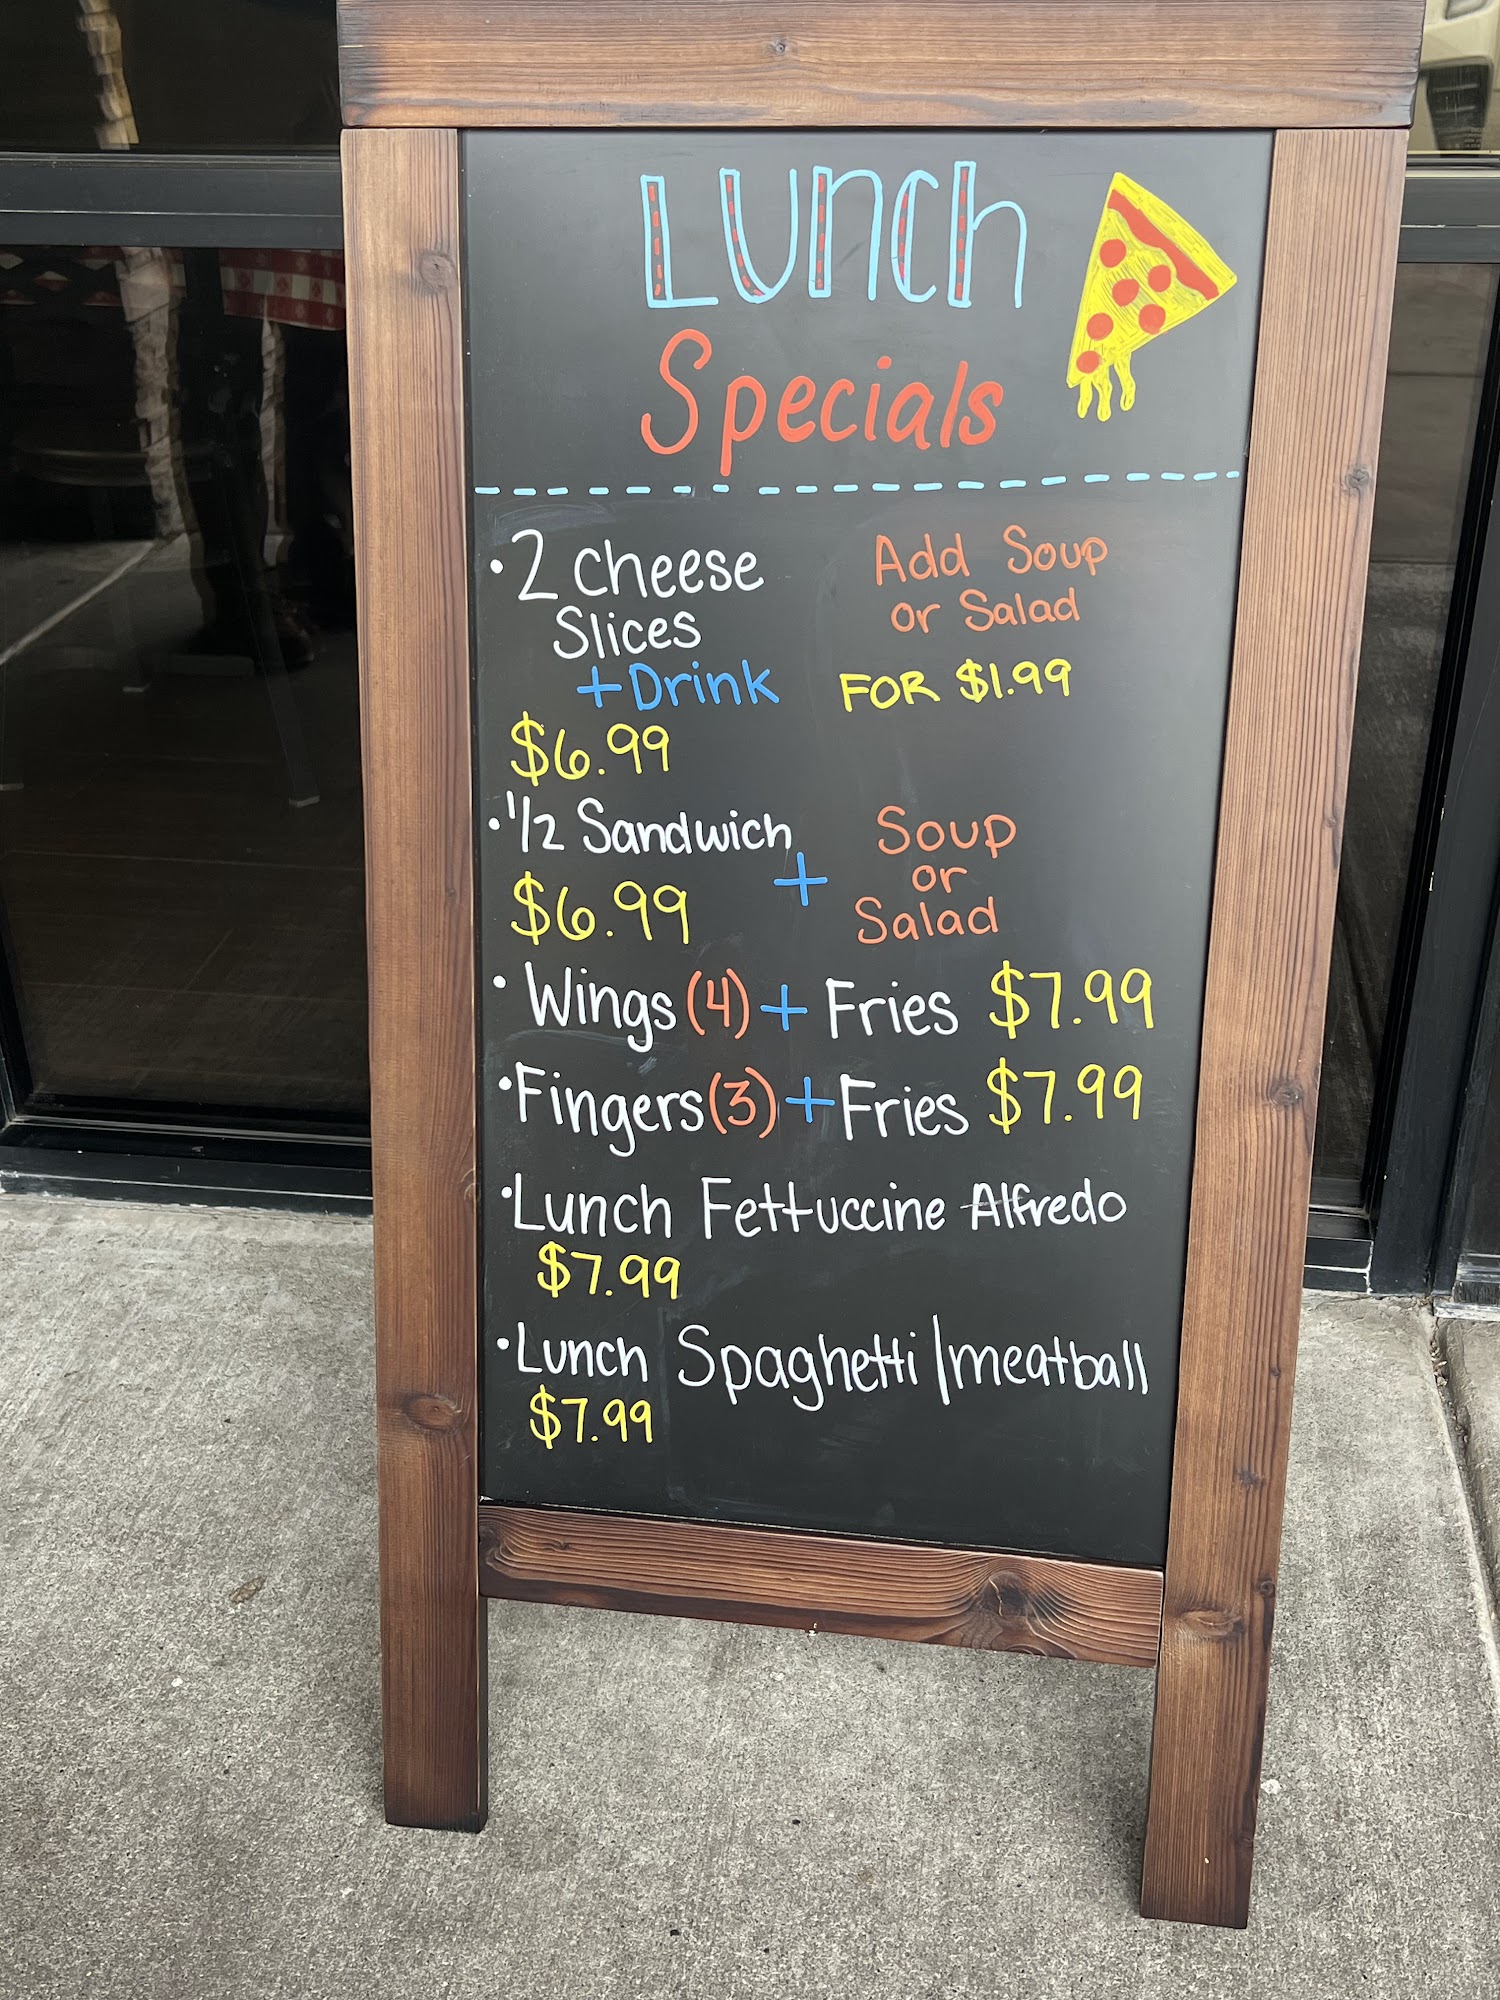 Lunch
Specials
• 2 Cheese
Slices
+ Drink
$6.99
Add Soup
or Salad
FOR $1.99
• 1/2 Sandwich + Soup
or
Salad
$6.99
• Wings (4) + Fries $7.99
• Fingers (3) + Fries $7.99
• Lunch Fettuccine Alfredo
$7.99
• Lunch Spaghetti/meatball
$7.99